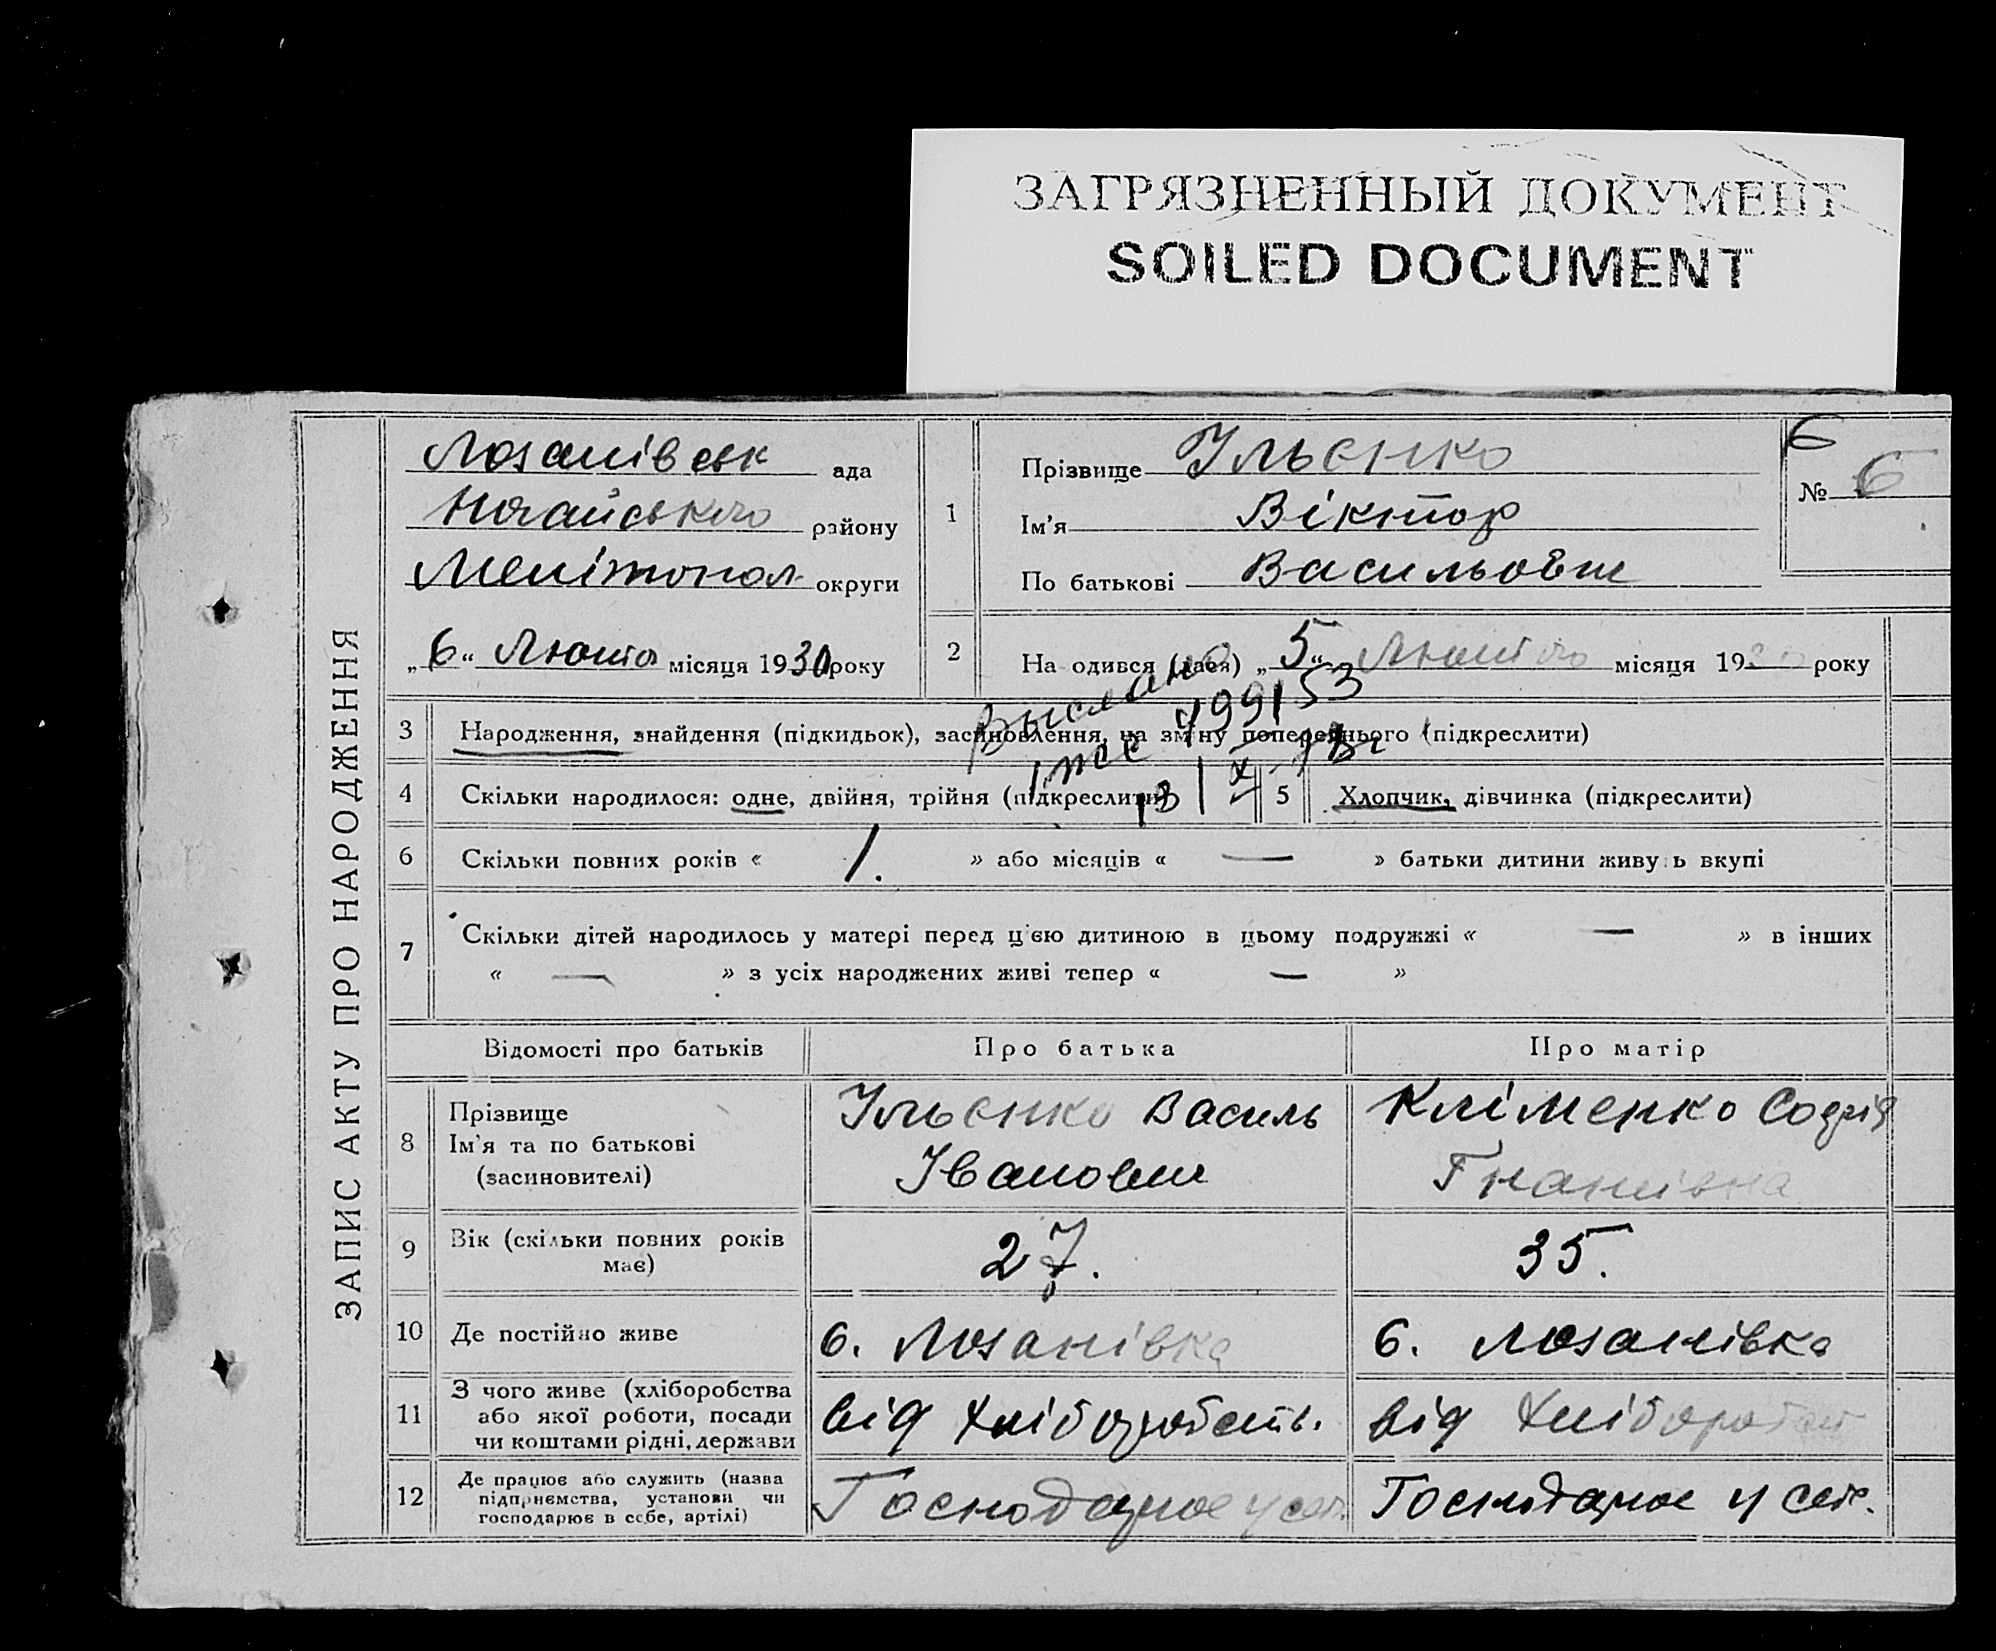 ЗАГРЯЗНЕННЫЙ ДОКУМЕНТ
SOILED DOCUMENT
ЗАПИС АКТУ ПРО НАРОДЖЕННЯ
Лозанівськ ада
Ногайського району
Мелітопол округи
„6“ Лютого місяця 1930 року
1
Прізвище Ільєнко
Ім'я Віктор
По батькові Васильович
6
№ 6
2
На одився (лася) „5“ Лютого місяця 1930 року
Выслано
499153
3 Народження, знайдення (підкидьок), засиновлення, на зміну попереднього (підкреслити)
4 Скільки народилося: одне, двійня, трійня (підкреслити)
13 X
5 Хлопчик, дівчинка (підкреслити)
6 Скільки повних років « 1. » або місяців « — » батьки дитини живуть вкупі
7 Скільки дітей народилось у матері перед ц'єю дитиною в цьому подружжі « — » в інших
« — » з усіх народжених живі тепер « — »
Відомості про батьків Про батька Про матір
8 Прізвище
Ім'я та по батькові
(засиновителі)
Ільєнко Василь
Іванович
Кліменко Софія
Гнатівна
9 Вік (скільки повних років
має)
27. 35.
10 Де постійно живе с. Лозанівка с. Лозанівка
11 З чого живе (хліборобства
або якої роботи, посади
чи коштами рідні, держави
від хліборобств. від хліборобст
12 Де працює або служить (назва
підприємства, установи чи
господарює в себе, артілі)
Господарює у себе. Господарює у себе.